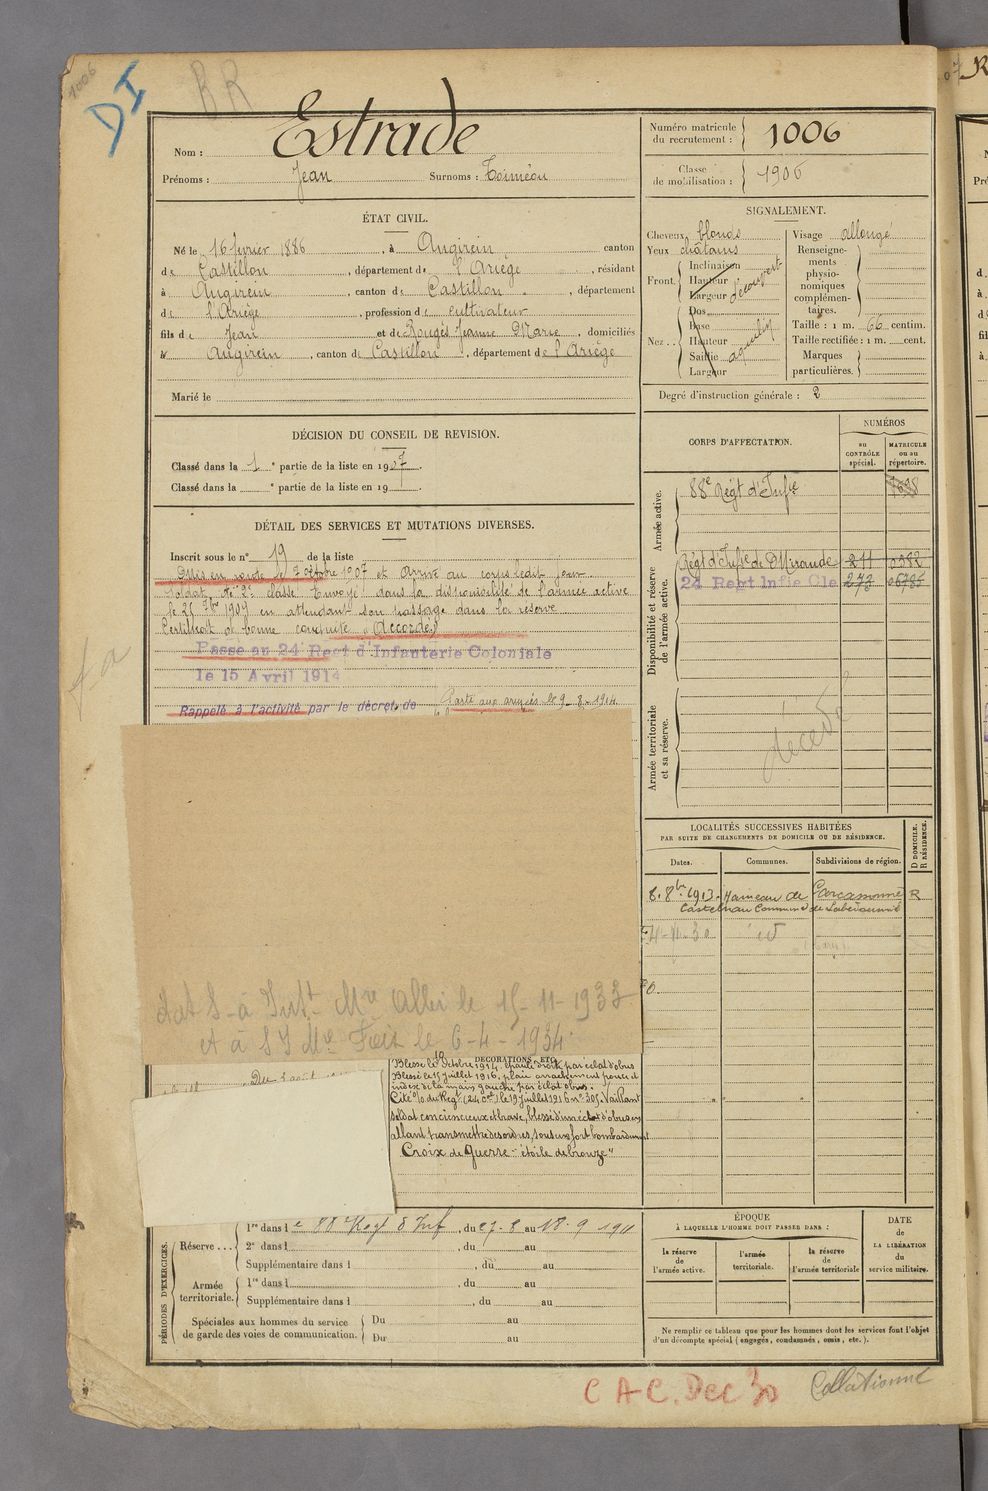 1006
DI
BR
Nom : Estrade
Prénoms : Jean Surnoms :
Numéro matricule du recrutement : 1006
Classe de mobilisation : 1906
ÉTAT CIVIL.
Né le 16 février 1886, à Augirein canton
de Castillon, département de l'Ariège, résidant
à Augirein, canton de Castillon, département
de l'Ariège, profession de cultivateur
fils de Jean et de Rougés Jeanne Marie, domiciliés
à Augirein, canton de Castillon, département de l'Ariège
Marié le
SIGNALEMENT.
Cheveux blonds
Yeux châtains
Front. Inclinaison
Hauteur découvert
Largeur
Nez.. Dos
Base
Hauteur aquilin
Saillie
Largeur
Visage allongé
Renseignements physionomiques complémentaires.
Taille : 1 m. 66 centim.
Taille rectifiée : 1 m. cent.
Marques particulières.
Degré d'instruction générale : 2
DÉCISION DU CONSEIL DE REVISION.
Classé dans la 1e partie de la liste en 1907.
Classé dans la e partie de la liste en 19 .
CORPS D'AFFECTATION.
NUMÉROS
au CONTRÔLE spécial.
MATRICULE ou au répertoire.
Armée active.
88e Régt d'Infie
Disponibilité et réserve de l'armée active.
Régt d'Infie de Mirande 211
24 Regt Infie Cle 273
Armée territoriale et sa réserve.
décédé
DÉTAIL DES SERVICES ET MUTATIONS DIVERSES.
Inscrit sous le n° 19 de la liste
Mis en route le 7 octobre 1907 et Arrivé au corps ledit jour
Soldat de 2e classe Envoyé dans la disponibilité de l'armée active
le 25 7bre 1909 en attendant son passage dans la réserve
Certificat de bonne conduite "Accordé"
Passe au 24 Regt d'Infanterie Coloniale
le 15 Avril 1914
Rappelé à l'activité par le décret de Parti aux armées le 9-8-1914
LOCALITÉS SUCCESSIVES HABITÉES
PAR SUITE DE CHANGEMENTS DE DOMICILE OU DE RÉSIDENCE.
Dates. Communes. Subdivisions de région. D DOMICILE. R RÉSIDENCE.
8.8bre 1913. Hameau de Carcassonne R
Castelnau Commune de
id
le 15-11-1933
et à le 6-4-1934
DÉCORATIONS, ETC.
Blessé le 10 Octobre 1914, épaule droite par éclat d'obus
Blessé le 15 juillet 1916, plaie arrachement pouce et
index de la main gauche par éclat obus.
Cité % du Regt (24 Ont) le 19 juillet 1916 n° 205. Vaillant
soldat consciencieux et brave, blessé d'un éclat d'obus en
allant transmettre des ordres, sous un fort bombardement
Croix de Guerre - étoile de bronze"
PÉRIODES D'EXERCICES.
Réserve... 1re dans le 88 Regt d'Inf, du 27-8 au 18-9 1911
2e dans l , du au
Supplémentaire dans l , du au
Armée territoriale. 1re dans l , du au
Supplémentaire dans l , du au
Spéciales aux hommes du service de garde des voies de communication. Du au
Du au
ÉPOQUE
À LAQUELLE L'HOMME DOIT PASSER DANS :
la réserve de l'armée active.
l'armée territoriale.
la réserve de l'armée territoriale
DATE de LA LIBÉRATION du service militaire.
Ne remplir ce tableau que pour les hommes dont les services font l'objet
d'un décompte spécial (engagés, condamnés, omis, etc.).
CAC. Dec 30
Collationné